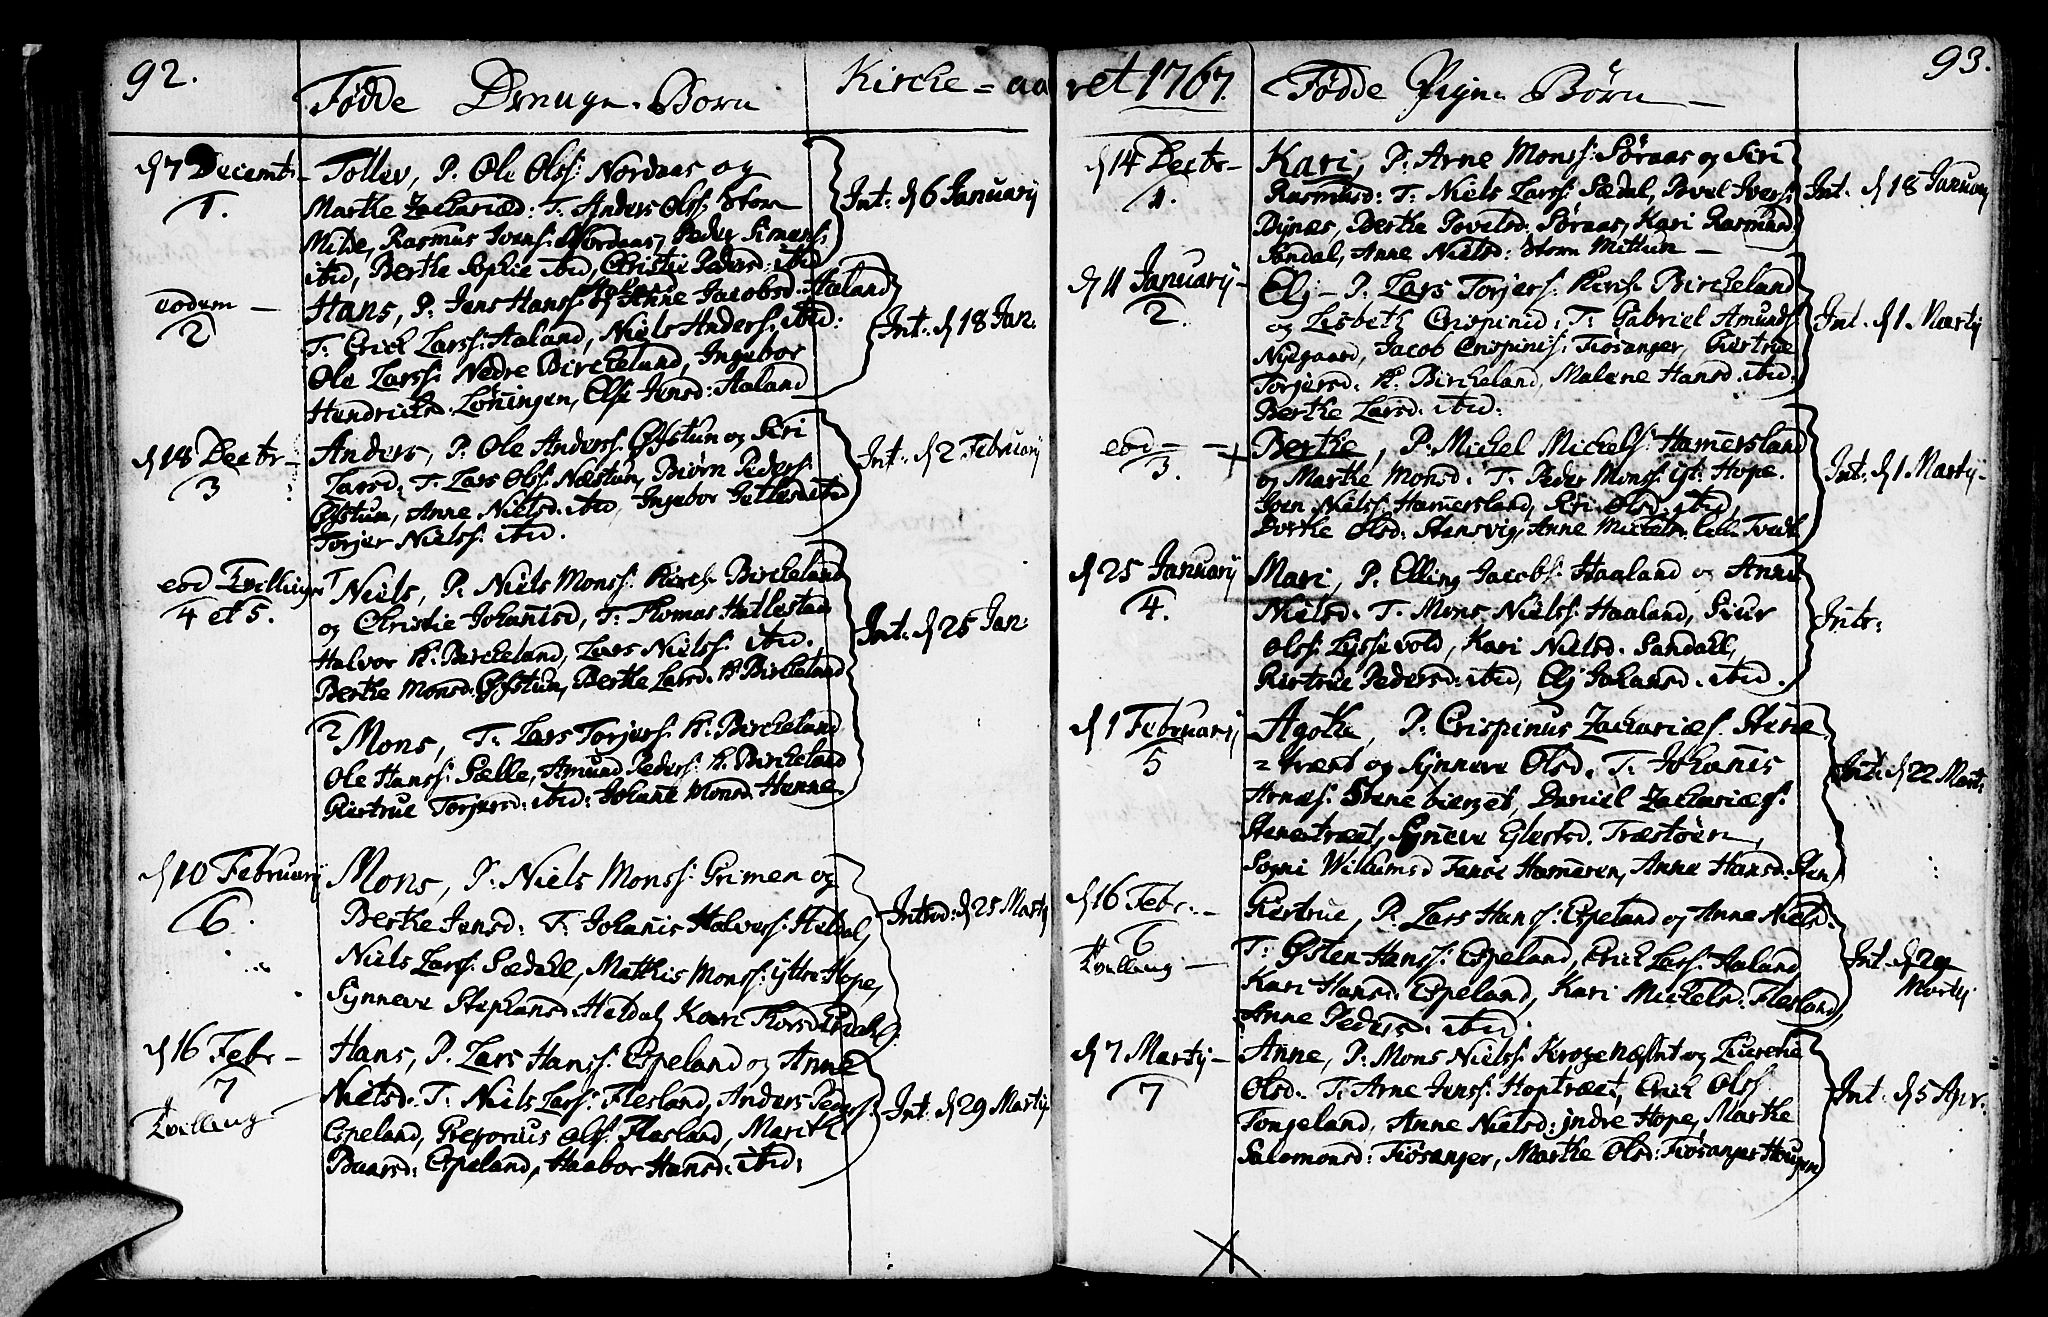 92.
Fødde Drenge-Børn
Kirche-aa
d 7 Decembr.
1.
Tollev, P. Ole Olss: Nordaas og
Marthe Zachariæd: T. Anders Olss: Store
Milde, Rasmus Ivers: Nordaas, Peder Simens:
ibid, Berthe Sophie ibid, Christie Peders d: ibid
Int: d 6 Januarij
eodem —
2
Hans, P. Jens Hanss: og Anne Jacobsd: Haland
T. Erich Larss: Haland, Niels Anders: ibid:
Ole Larss: Nedre Birckeland, Ingebor
Hendrichsd: Løningen, Else Jensd: Haland
Int: d 18 Jan:
d 18 Decbr —
3
Anders, P. Ole Anderss: Øfstun og Siri
Larsd: T. Lars Olss: Næstun, Biørn Peders:
Øfstun, Anne Nielsd: ibid, Ingebor ibid
Torjer Nielss: ibid.
Int: d 2 Februarij
eod Tvillinger
4 et 5.
Niels, P. Niels Monss: Kirch Birckeland
og Christie Johanisd, T. Thomas Hatlestad
Halvor K. Birckeland, Lars Nielss: ibid.
Berthe Monsd: Øfstun, Berthe Larsd: K. Birckeland
Int: d 25 Jan:
2 Mons, T. Lars Torjers: K. Birckeland
Ole Hanss: Sælle, Amund Peders: K. Birckeland
Giertrue Torjersd: ibid: Johane Monsd. Henne.
d 10 Februarij
6.
Mons, P. Niels Monss: Grimen og
Berthe Jensd: T. Johanis Halvors: Heldal,
Niels Larss: Sædall, Mathis Monss: yttre Hope,
Synneve Stephansd: Heldal, Kari Thorsd:
Introd: d 25 Martij
d 16 Febr —
7
Tvilling
Hans, P. Lars Hanss: Espeland og Anne
Nielsd: T. Niels Larss: Flesland, Anders Peders:
Espeland, Gregorius Olss: Flesland, Marithe
Baarsd: Espeland, Haabor Hansd: ibid:
Int: d 29 Martij
ret 1767.
Fødde Pige-Børn —
93.
d 14 Decbr —
1.
Kari, P. Arne Monss: Søraas og Siri
Rasmusd: T. Niels Larss: Sædal, Povel Ivers:
Bynæs, Berthe Povelsd: Søraas, Kari Rasmusd
Sandal, Anne Nielsd: Store Mittun —
Int: d 18 Januarij
d 11 Januarij —
2.
Elj — P. Lars Torjers: Kirch Birckeland
og Lisbeth Crispinid: T. Gabriel Amunds:
Nydgaard, Jacob Crispinis: Fiøsanger, Giertrue
Torjersd: K. Birckeland, Malene Hansd: ibid:
Berthe Larsd: ibid:
Int: d 1 Martij
eod — — +
3.
Berthe, P. Michel Michels: Hamersland
og Marthe Monsd: T. Peder Monss: yt: Hope.
Joen Nielss: Hamersland, Siri Olsd: ibid,
Dorthe Olsd: Stensvig, Anne Michelsd: Lille Tvedt
Int: d 1 Martij —
d 25 Januarij
4.
Mari, P. Elling Jacobs: Haaland og Anne
Nielsd: T. Mons Nielss: Haaland, Siur
Olss: Lyssevold, Kari Nielsd: Sandall,
Giertrue Pedersd: ibid, Elj Johansd: ibid.
Intr:
d 1 Februarij
5
Agothe, P. Crispinus Zachariæs: Stene
= træet og Synneve Olsd: T. Johanis
Arnes: Stenebierget, Daniel Zachariæs:
Stenetræet, Synneve Træstøen,
Sogni Wilhelmsd Hameren, Anne Hansd: Sten
Int: d 22 Mart:
d 16 Febr. —
6
Tvilling —
Giertrue, P. Lars Hanss: Espeland og Anne Nielsd:
T: Østen Hanss: Espeland, Erich Larss: Haland
Kari Hansd: Espeland, Kari Michelsd: Flesland,
Anne Pedersd: ibid:
Int: d 29
Martij
d 7 Martij —
7
Anne, P. Mons Nielss: Krogenæs og
Olsd: T. Arne Jenss: Hoptræet, Erich Olss:
Tongeland, Anne Nielsd: indre Hope, Marthe
Salomonsd: Fiøsanger, Marthe Olsd: Fiøsanger Hougen
Int: d 5 Apr: